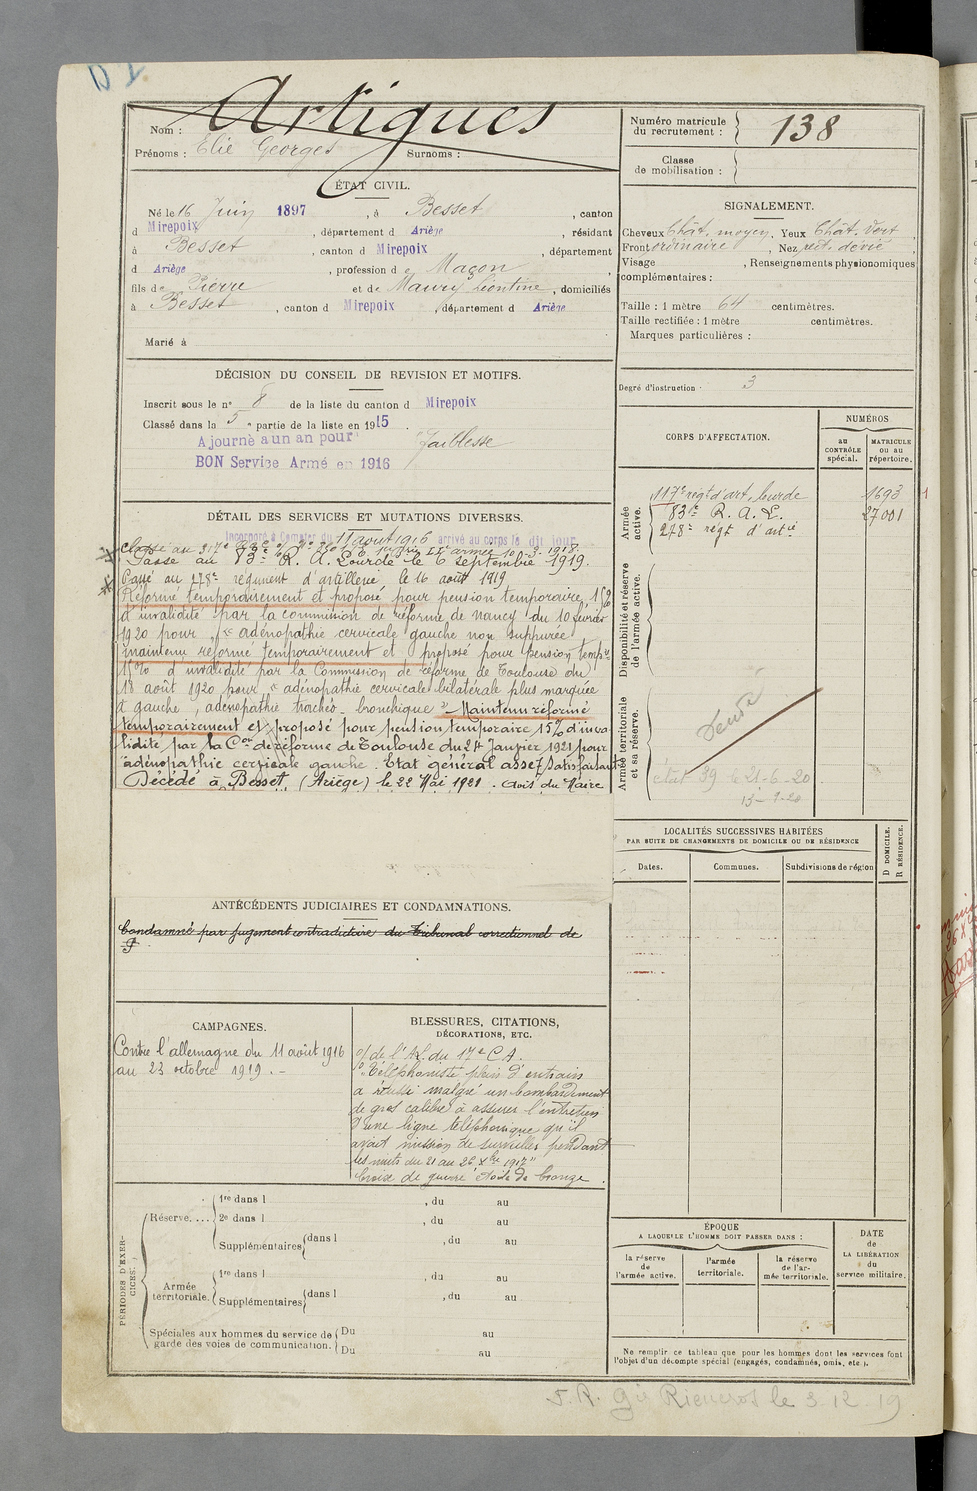 Artigues
Nom :
Prénoms : Elie Georges Surnoms :
Numéro matricule
du recrutement : 138
Classe
de mobilisation :
ÉTAT CIVIL.
Né le 16 Juin 1897, à Besset, canton
d Mirepoix, département d Ariège, résidant
à Besset, canton d Mirepoix, département
d Ariège, profession de Maçon,
fils de Pierre et de Maury Léontine, domiciliés
à Besset, canton d Mirepoix, département d Ariège
Marié à
SIGNALEMENT.
Cheveux Chât. moyen, Yeux Chât. vert
Front ordinaire, Nez rect. dévié
Visage , Renseignements physionomiques
complémentaires :
Taille : 1 mètre 64 centimètres.
Taille rectifiée : 1 mètre centimètres.
Marques particulières :
Degré d'instruction : 3
DÉCISION DU CONSEIL DE REVISION ET MOTIFS.
Inscrit sous le n° 8 de la liste du canton d Mirepoix
Classé dans la 5e partie de la liste en 1915.
Ajourné à un an pour Faiblesse
BON Service Armé en 1916
DÉTAIL DES SERVICES ET MUTATIONS DIVERSES.
Incorporé à compter du 11 août 1916 arrivé au corps le dit jour
Passé au 83e R. A. Lourde le 6 septembre 1919.
Passé au 278e régiment d'artillerie le 16 août 1919
Réformé temporairement et proposé pour pension temporaire
d'invalidité par la commission de réforme de Nancy du 10 février
1920 pour adénopathie cervicale gauche non suppurée
maintenu réformé temporairement et proposé pour pension temp.re
15% d'invalidité par la Commission de réforme de Toulouse du
18 août 1920 pour « adénopathie cervicale bilatérale plus marquée
à gauche, adénopathie trachéo-bronchique » Maintenu réformé
temporairement et proposé pour pension temporaire 15% d'inva
lidité par la Con de réforme de Toulouse du 24 Janvier 1921 pour
adénopathie cervicale gauche. Etat général assez satisfaisant
Décédé à Besset, (Ariège) le 22 Mai 1921. Avis du Maire
CORPS D'AFFECTATION.
NUMÉROS
au
CONTRÔLE
spécial.
MATRICULE
ou au
répertoire.
Armée
active.
117e régt d'art. lourde 1693
83e R. A. L. 27001
278e régt d'artie
Disponibilité et réserve
de l'armée active.
Armée territoriale
et sa réserve.
état 39 le 21-6-20
LOCALITÉS SUCCESSIVES HABITÉES
PAR SUITE DE CHANGEMENTS DE DOMICILE OU DE RÉSIDENCE
D DOMICILE.
R RÉSIDENCE.
Dates. Communes. Subdivisions de région
ANTÉCÉDENTS JUDICIAIRES ET CONDAMNATIONS.
Condamné par jugement contradictoire du Tribunal correctionnel de
CAMPAGNES.
Contre l'allemagne du 11 août 1916
au 23 octobre 1919.-
BLESSURES, CITATIONS,
DÉCORATIONS, ETC.
de l'A.L. du 17e C.A.
"Téléphoniste plein d'entrain
a réussi malgré un bombardement
de gros calibre à assurer l'entretien
d'une ligne téléphonique qu'il
avait mission de surveiller pendant
les nuits du 21 au 26 Xbre 1917"
Croix de guerre étoile de bronze.
PÉRIODES D'EXER-
CICES.
Réserve....
1re dans l , du au
2e dans l , du au
Supplémentaires dans l , du au
Armée
territoriale.
1re dans l , du au
Supplémentaires dans l , du au
Spéciales aux hommes du service de
garde des voies de communication.
Du au
Du au
ÉPOQUE
A LAQUELLE L'HOMME DOIT PASSER DANS :
la réserve
de
l'armée active.
l'armée
territoriale.
la réserve
de l'ar-
mée territoriale.
DATE
de
LA LIBÉRATION
du
service militaire.
Ne remplir ce tableau que pour les hommes dont les services font
l'objet d'un décompte spécial (engagés, condamnés, omis, etc.).
le 3.12.19